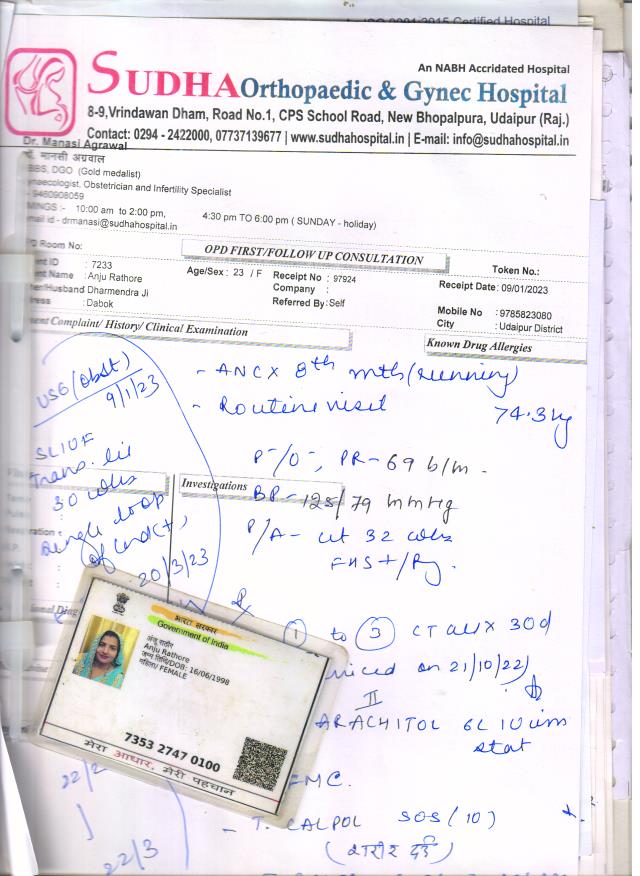 ISO 9001:2015 Certified Hospital
An NABH Accridated Hospital
SUDHA Orthopaedic & Gynec Hospital
8-9,Vrindawan Dham, Road No.1, CPS School Road, New Bhopalpura, Udaipur (Raj.)
Contact: 0294 - 2422000, 07737139677 | www.sudhahospital.in | E-mail: info@sudhahospital.in
Dr. Manasi Agrawal
मानसी अग्रवाल
BBS, DGO (Gold medalist)
ynaecologist, Obstetrician and Infertility Specialist
- 9460908059
MINGS :- 10:00 am to 2:00 pm, 4:30 pm TO 6:00 pm ( SUNDAY - holiday)
mail id - drmanasi@sudhahospital.in
Room No: OPD FIRST/FOLLOW UP CONSULTATION Token No.:
ent ID : 7233 Age/Sex : 23 / F Receipt No : 97924 Receipt Date: 09/01/2023
ent Name : Anju Rathore Company :
er/Husband Dharmendra Ji Referred By : Self Mobile No : 9785823080
ress : Dabok City : Udaipur District
sent Complaint/ History/ Clinical Examination Known Drug Allergies
USG (obst) 9/1/23
- ANCX 8th mth (running)
- Routine visit 74.3 kg
SLIUF
30 wks
loop
of cord +,
20/3/23
PR - 69 b/m -
Investigations
BP - 125/79 mmHg
P/A - ut 32 wks
FHS + / Rg.
① to ③ CT all X 30d
on 21/10/22)
II
ARACHITOL 6L IU im
stat
FMC.
- T. CALPOL SOS (10)
(शरीर दर्द)
22/2
22/3
भारत सरकार
Government of India
अंजू राठौर
Anju Rathore
जन्म तिथि/DOB: 16/06/1998
महिला/ FEMALE
7353 2747 0100
मेरा आधार, मेरी पहचान